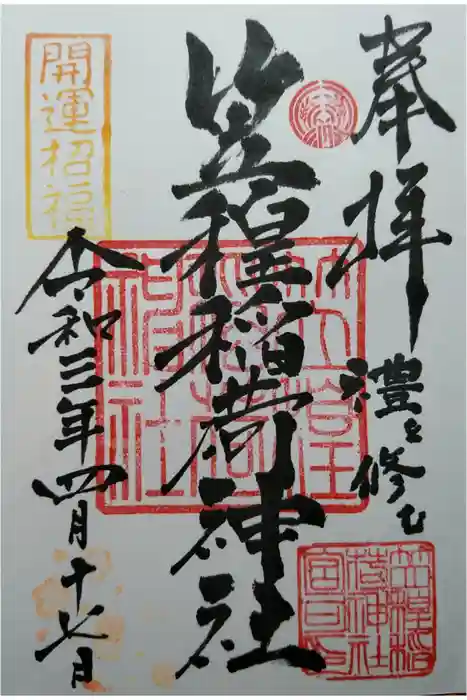 奉拝
禮を修む
笠䅣稲荷神社
開運招福
令和三年四月十七日
笠䅣
稲荷
神社
笠䅣稲
荷神社